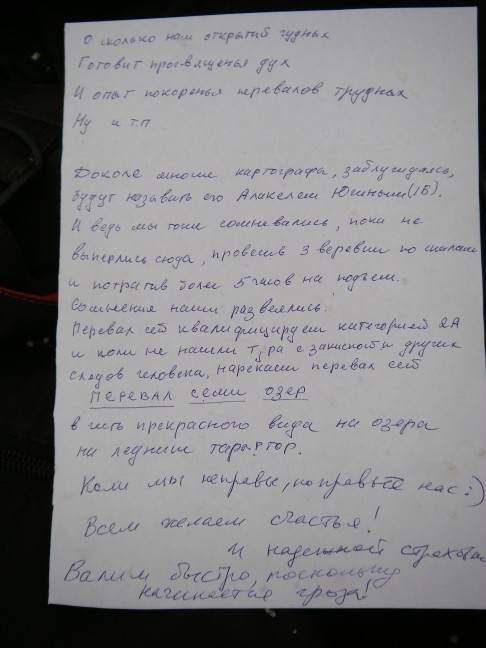 О сколько нам открытий чудных
Готовит просвященья дух
И опыт покоренья перевалов трудных
Ну и т.п
Доколе многие картографы, заблуждаясь,
будут называть его Алакелем Южным (1Б).
И ведь мы тоже сомневались, пока не
выперлись сюда, провесив 3 веревки по скалам
и потратив более 5 часов на подъем.
Сомнения наши развеялись.
Перевал сей квалифицируем категорией 2А
и коли не нашли тура с запиской и других
следов человека, нарекаем перевал сей
ПЕРЕВАЛ СЕМИ ОЗЕР
в честь прекрасного вида на озера
на леднике
Коли мы неправы, поправьте нас :)
Всем желаем счастья!
И надежной страховки
Валим быстро, поскольку
начинается гроза!